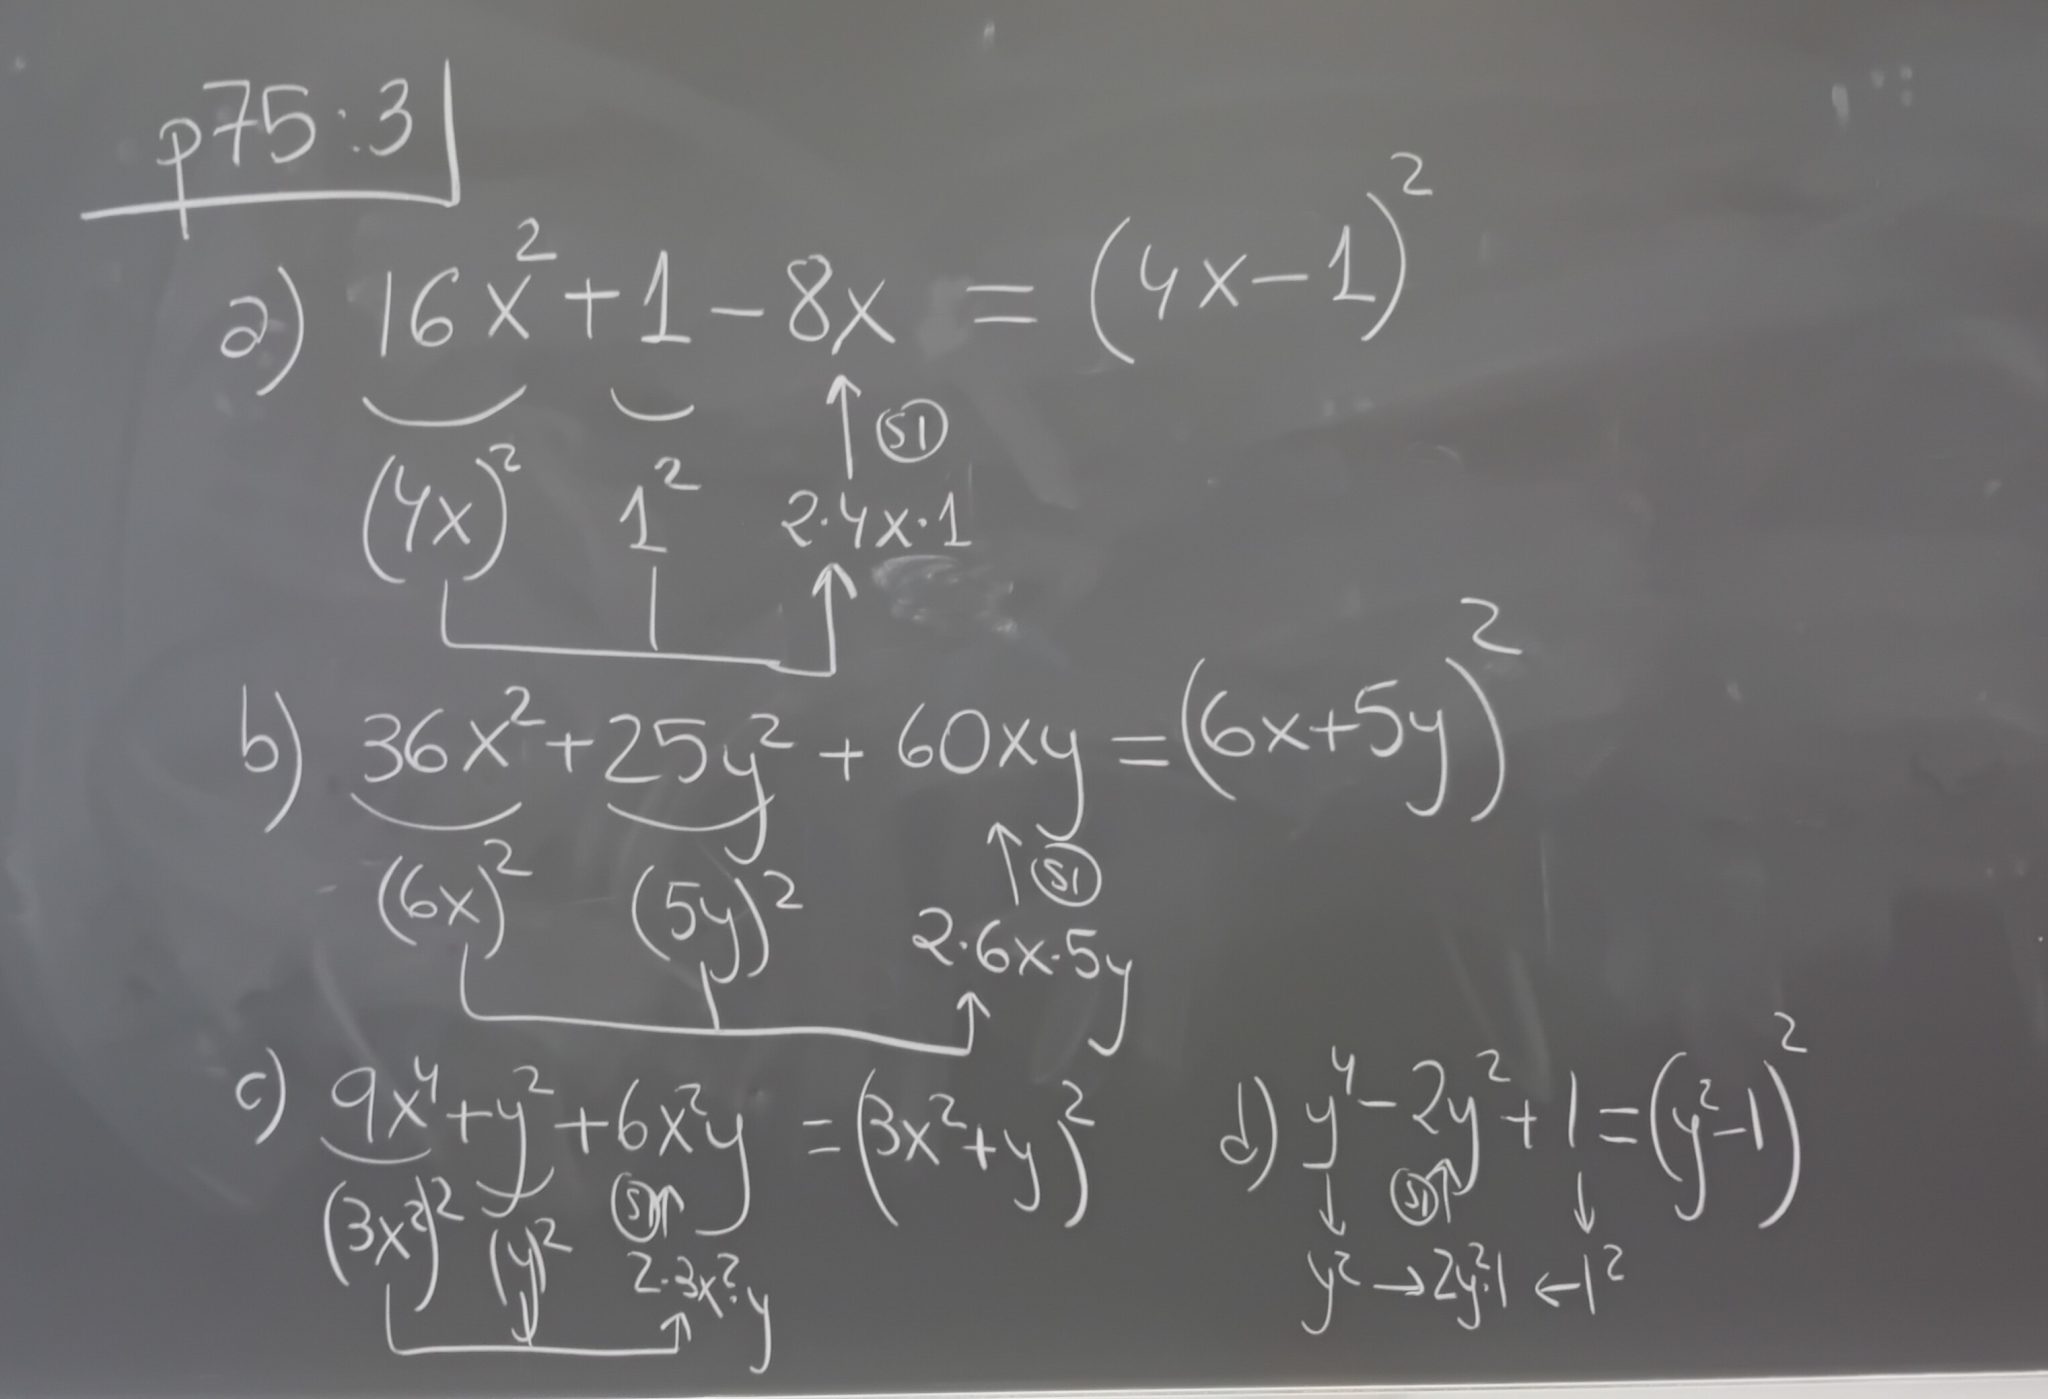 p75:3
a) 16x² + 1 - 8x = (4x - 1)²
SI
(4x)² 1² 2·4x·1
b) 36x² + 25y² + 60xy = (6x + 5y)²
SI
(6x)² (5y)² 2·6x·5y
c) 9x⁴ + y² + 6x²y = (3x² + y)²
SI
(3x²)² (y)² 2·3x²·y
d) y⁴ - 2y² + 1 = (y² - 1)²
SI
y² → 2y²·1 ← 1²